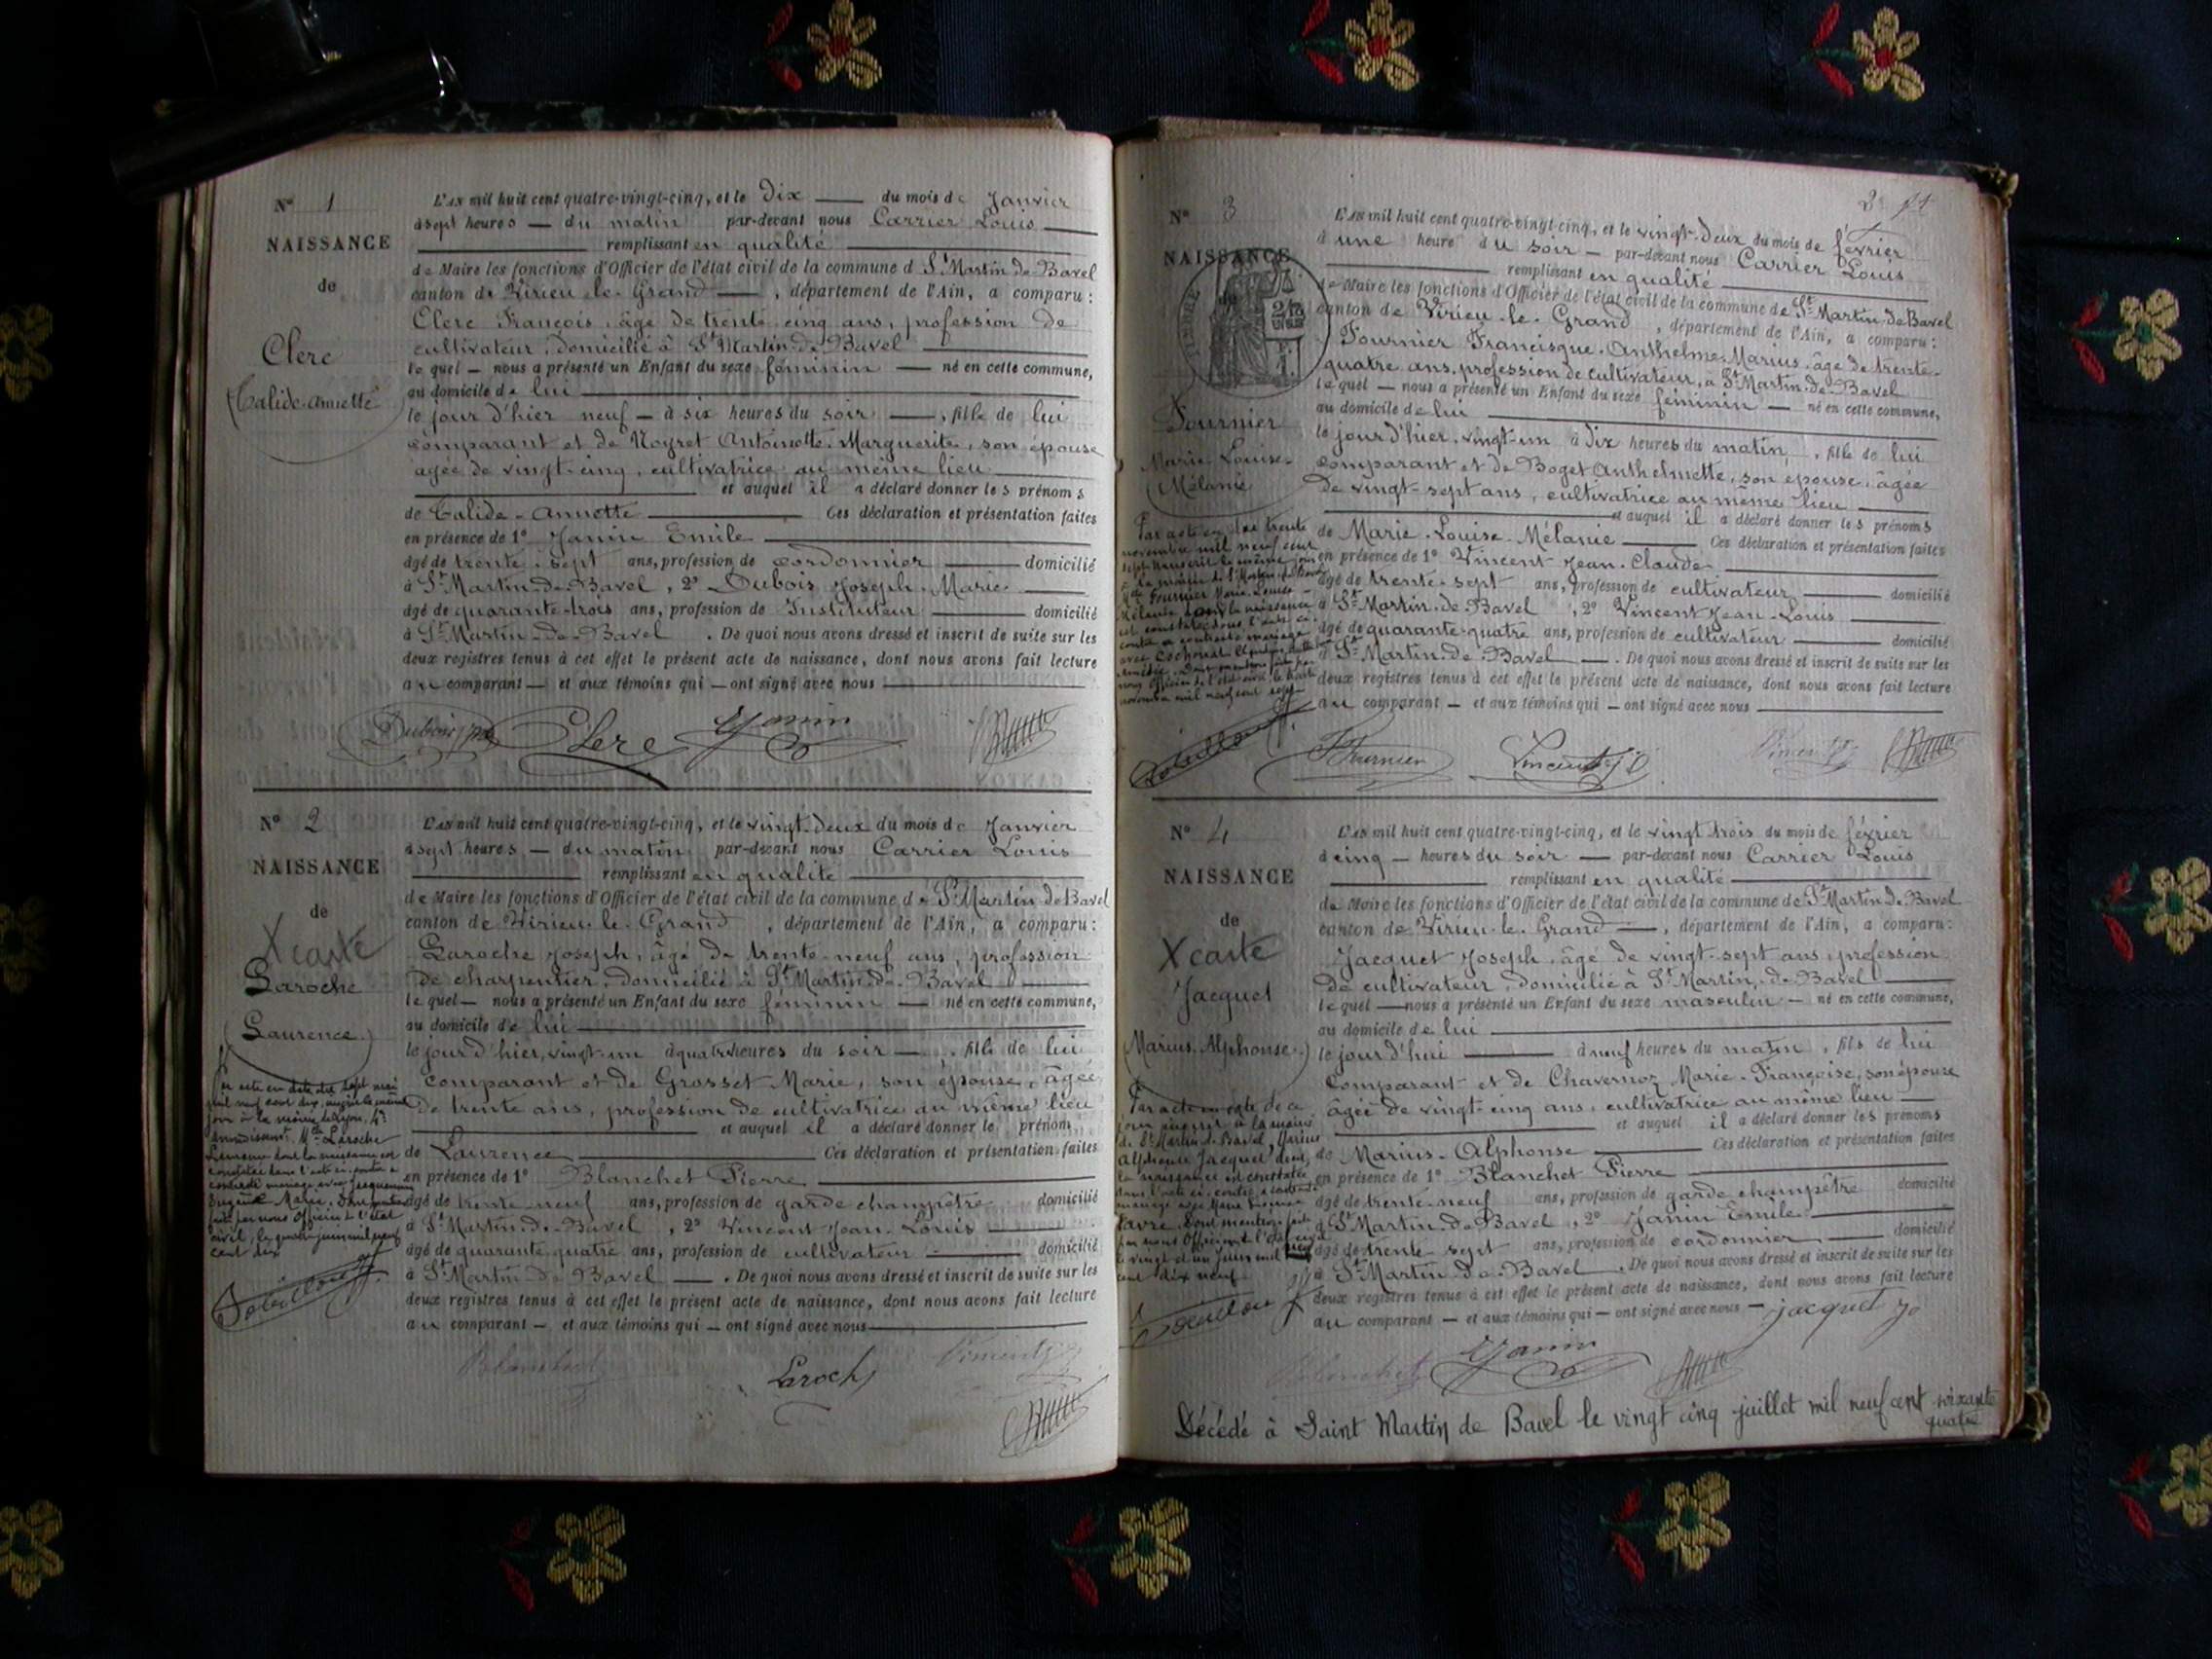 N° 1
NAISSANCE
de
Clerc
Calide-Annette
L'AN mil huit cent quatre-vingt-cinq, et le Dix du mois de Janvier
à sept heures du matin par-devant nous Carrier Louis
remplissant en qualité
de Maire les fonctions d'Officier de l'état civil de la commune d St Martin de Bavel
canton de Virieu-le-Grand, département de l'Ain, a comparu :
Clerc François, âgé de trente-cinq ans, profession de
cultivateur, domicilié à St Martin-de-Bavel
lequel nous a présenté un Enfant du sexe féminin né en cette commune,
au domicile de lui
le jour d'hier neuf à six heures du soir, fille de lui
comparant et de Noyret Antoinette-Marguerite, son épouse
âgée de vingt-cinq, cultivatrice au même lieu
et auquel il a déclaré donner les prénoms
de Calide-Annette Ces déclaration et présentation faites
en présence de 1° Janin Emile
âgé de trente-sept ans, profession de cordonnier domicilié
à St Martin-de-Bavel, 2° Dubois Joseph-Marie
âgé de quarante-trois ans, profession de Instituteur domicilié
à St Martin-de-Bavel. De quoi nous avons dressé et inscrit de suite sur les
deux registres tenus à cet effet le présent acte de naissance, dont nous avons fait lecture
au comparant et aux témoins qui ont signé avec nous
Dubois Clerc Janin
N° 2
NAISSANCE
de
X carte
Laroche
Laurence
L'AN mil huit cent quatre-vingt-cinq, et le vingt-deux du mois de Janvier
à sept heures du matin par-devant nous Carrier Louis
remplissant en qualité
de Maire les fonctions d'Officier de l'état civil de la commune de St Martin de Bavel
canton de Virieu-le-Grand, département de l'Ain, a comparu :
Laroche Joseph, âgé de trente-neuf ans, profession
de charpentier, domicilié à St Martin-de-Bavel
lequel nous a présenté un Enfant du sexe féminin né en cette commune,
au domicile de lui
le jour d'hier, vingt-un à quatre heures du soir, fille de lui
comparant et de Grosset Marie, son épouse, âgée
de trente ans, profession de cultivatrice au même lieu
et auquel il a déclaré donner le prénom
de Laurence Ces déclaration et présentation faites
en présence de 1° Blanchet Pierre
âgé de trente-neuf ans, profession de garde champêtre domicilié
à St Martin-de-Bavel, 2° Vincent Jean-Louis
âgé de quarante-quatre ans, profession de cultivateur domicilié
à St Martin-de-Bavel. De quoi nous avons dressé et inscrit de suite sur les
deux registres tenus à cet effet le présent acte de naissance, dont nous avons fait lecture
au comparant et aux témoins qui ont signé avec nous
Par acte en date du sept mai
mil neuf cent dix, inscrit le même
jour à la mairie de Lyon, 4e
arrondissement, Mlle Laroche
Laurence dont la naissance est
constatée dans l'acte ci-contre a
contracté mariage avec Jacquemin
Eugène Marie. Dont mention
faite par nous Officier de l'état
civil, le quatre juin mil neuf
cent dix
Blanchet Laroch Vincent
N° 3
NAISSANCE
Fournier
Marie-Louise-
Mélanie
L'AN mil huit cent quatre-vingt-cinq, et le vingt-deux du mois de février
à une heure du soir par-devant nous Carrier Louis
remplissant en qualité
de Maire les fonctions d'Officier de l'état civil de la commune de St Martin-de-Bavel
canton de Virieu-le-Grand, département de l'Ain, a comparu :
Fournier Francisque-Anthelme-Marius, âgé de trente-
quatre ans, profession de cultivateur, à St Martin-de-Bavel
lequel nous a présenté un Enfant du sexe féminin né en cette commune,
au domicile de lui
le jour d'hier, vingt-un à dix heures du matin, fille de lui
comparant et de Boget Anthelmette, son épouse, âgée
de vingt-sept ans, cultivatrice au même lieu
et auquel il a déclaré donner les prénoms
de Marie-Louise-Mélanie Ces déclaration et présentation faites
en présence de 1° Vincent Jean-Claude
âgé de trente-sept ans, profession de cultivateur domicilié
à St Martin-de-Bavel, 2° Vincent Jean-Louis
âgé de quarante-quatre ans, profession de cultivateur domicilié
à St Martin-de-Bavel. De quoi nous avons dressé et inscrit de suite sur les
deux registres tenus à cet effet le présent acte de naissance, dont nous avons fait lecture
au comparant et aux témoins qui ont signé avec nous
Par acte en date trente
novembre mil neuf cent
sept transcrit le même jour
à la mairie de St Martin-de-Bavel
Fournier Marie-Louise-
Mélanie dont la naissance
est constatée dans l'acte ci-
contre a contracté mariage
Fournier Vincent J C Vincent
N° 4
NAISSANCE
de
X carte
Jacquet
Marius-Alphonse
L'AN mil huit cent quatre-vingt-cinq, et le vingt trois du mois de février
à cinq heures du soir par-devant nous Carrier Louis
remplissant en qualité
de Maire les fonctions d'Officier de l'état civil de la commune de St Martin-de-Bavel
canton de Virieu-le-Grand, département de l'Ain, a comparu :
Jacquet Joseph, âgé de vingt-sept ans, profession
de cultivateur, domicilié à St Martin-de-Bavel
lequel nous a présenté un Enfant du sexe masculin né en cette commune,
au domicile de lui
le jour d'hui à neuf heures du matin, fils de lui
comparant et de Chavernoz Marie-Françoise, son épouse
âgée de vingt-cinq ans, cultivatrice au même lieu
et auquel il a déclaré donner les prénoms
de Marius-Alphonse Ces déclaration et présentation faites
en présence de 1° Blanchet Pierre
âgé de trente-neuf ans, profession de garde champêtre domicilié
à St Martin-de-Bavel, 2° Janin Emile
âgé de trente-sept ans, profession de cordonnier domicilié
à St Martin-de-Bavel. De quoi nous avons dressé et inscrit de suite sur les
deux registres tenus à cet effet le présent acte de naissance, dont nous avons fait lecture
au comparant et aux témoins qui ont signé avec nous jacquet jo
Par acte en date de ce
jour inscrit à la mairie
de St Martin-de-Bavel, Marius
Alphonse Jacquet dont
la naissance est constatée
dans l'acte ci-contre a contracté
mariage avec
Favre. Dont mention faite
par nous Officier de l'état civil
le vingt et un juin mil neuf
cent dix neuf
Blanchet Janin
Décédé à Saint Martin de Bavel le vingt cinq juillet mil neuf cent soixante
quatre